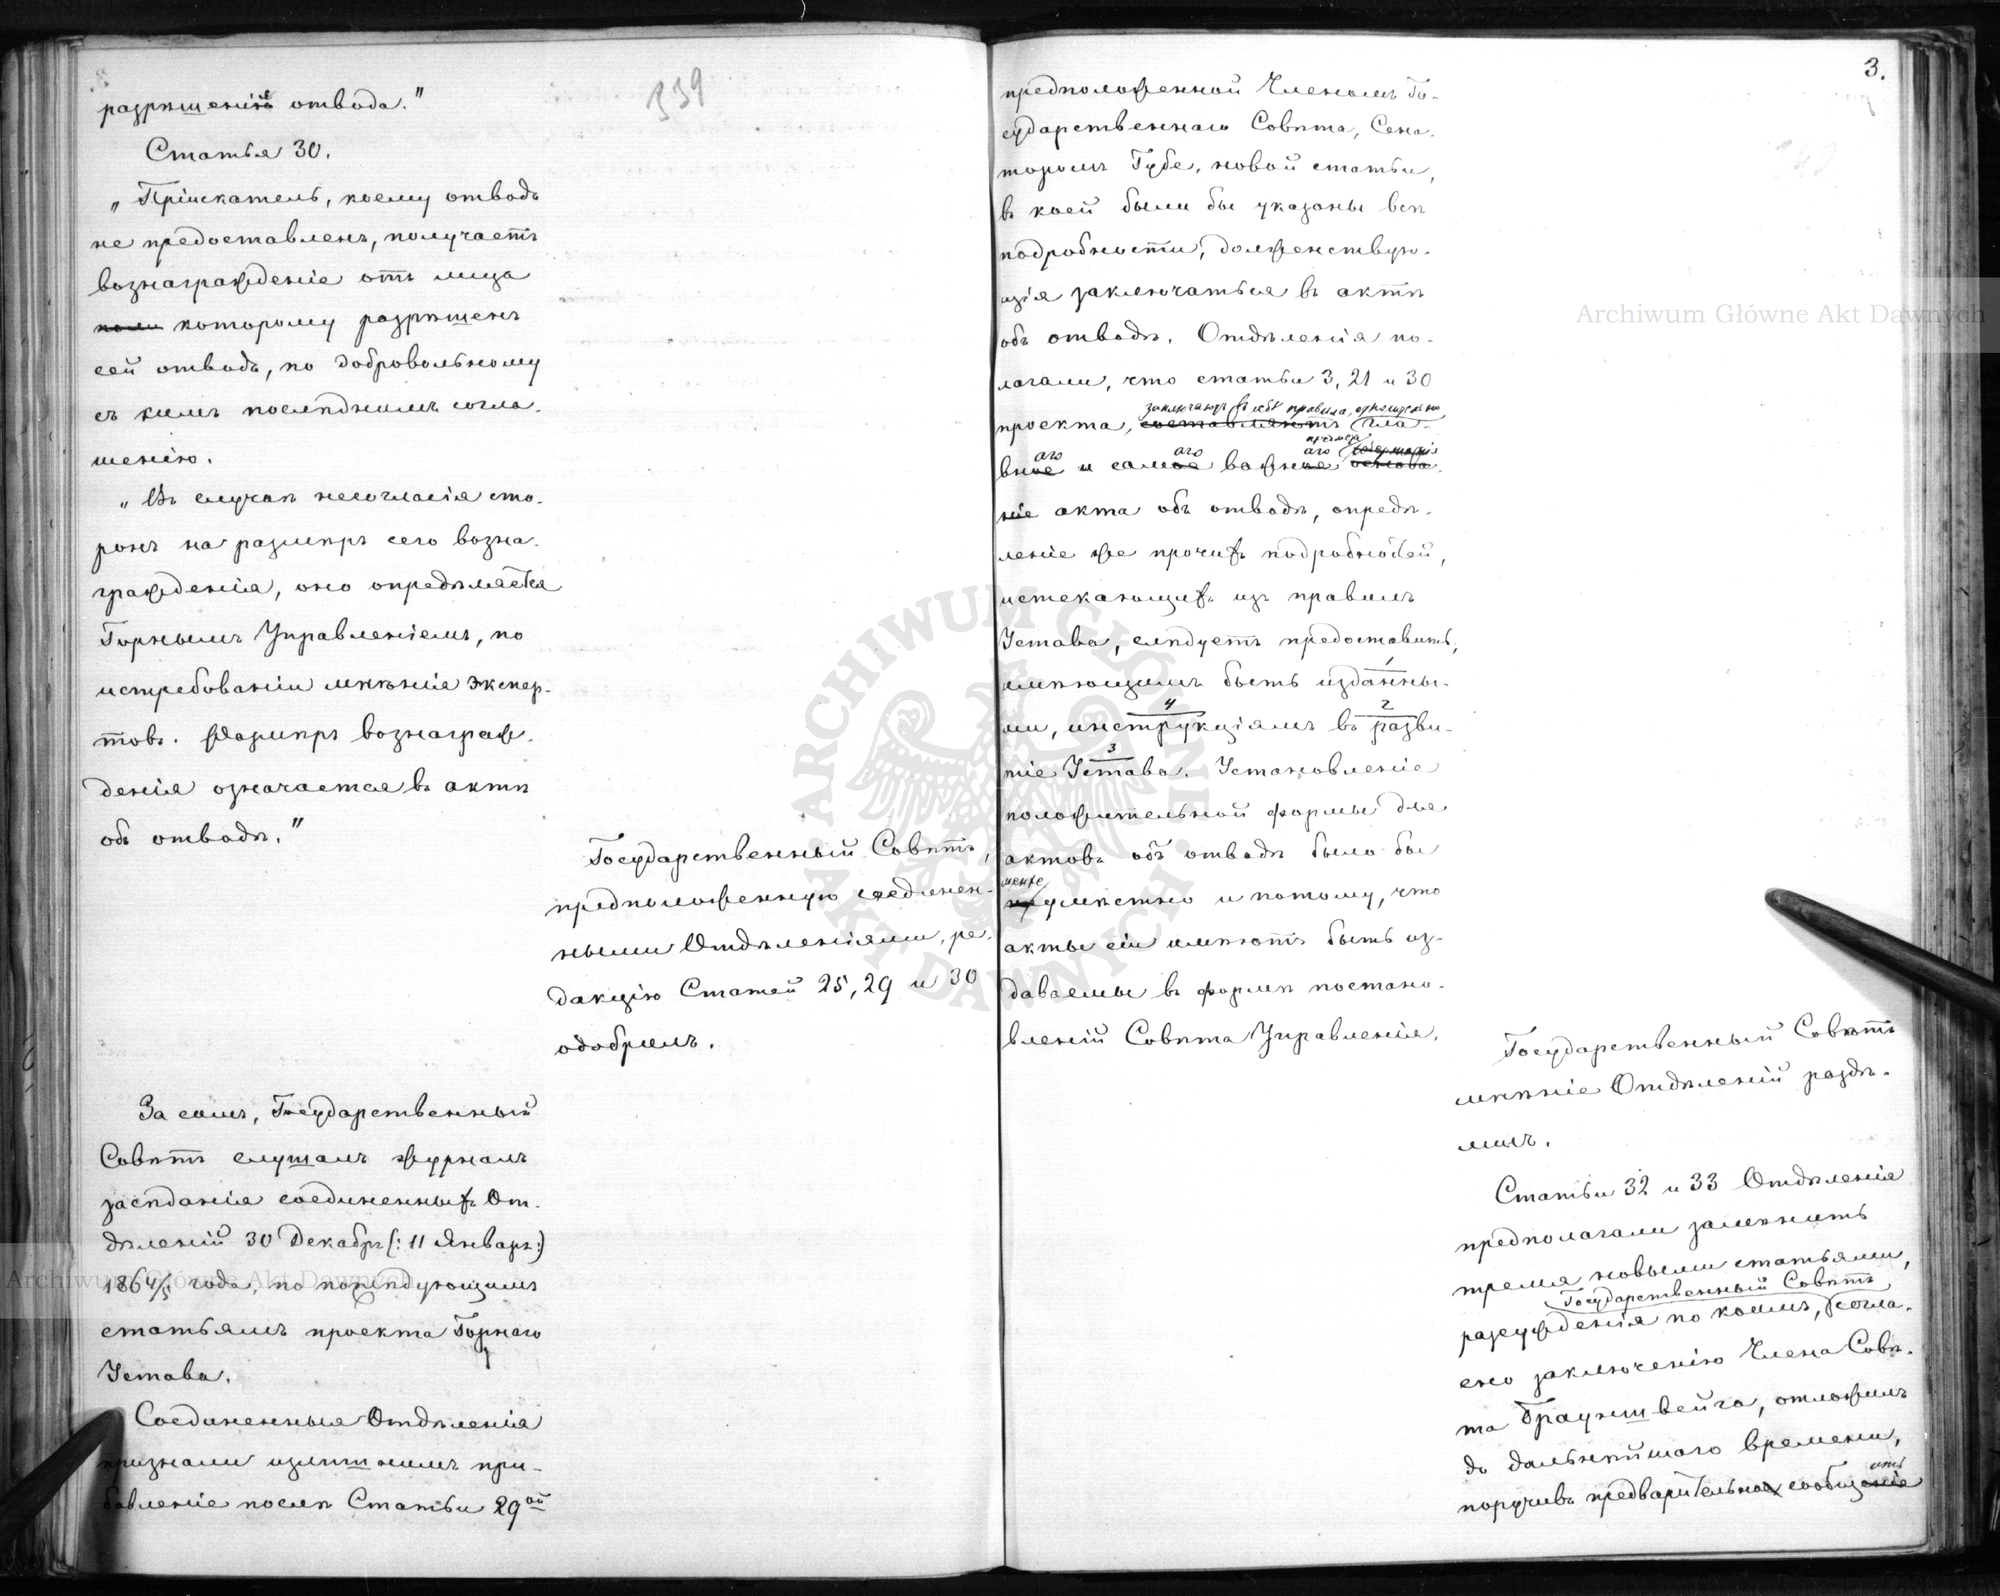 339
разрѣшенію отвода."
Статья 30.
„Пріискатель, коему отводъ
не предоставленъ, получаетъ
вознагражденіе отъ лица
которому разрѣшенъ
сей отводъ, по добровольному
съ симъ послѣднимъ согла-
шенію.
„Въ случаѣ несогласія сто-
ронъ на размѣръ сего возна-
гражденія, оно опредѣляется
Горнымъ Управленіемъ, по
истребованіи мнѣнія экспер-
товъ. Размѣръ вознаграж-
денія означается въ актѣ
объ отводѣ."
Государственный Совѣтъ,
предположенную соединен-
ными Отдѣленіями, ре-
дакцію Статей 25, 29 и 30
одобрилъ.
За симъ, Государственный
Совѣтъ слушалъ журналъ
засѣданія соединенныхъ От-
дѣленій 30 Декабря (: 11 Января :)
1864/5 года, по послѣдующимъ
статьямъ проекта Горнаго
Устава.
Соединенныя Отдѣленія
признали излишнимъ при-
бавленіе послѣ Статьи 29ой
3.
предположенной Членомъ Го-
сударственнаго Совѣта, Сена-
торомъ Губе, новой статьи,
въ коей были бы указаны всѣ
подробности, долженствую-
щія заключаться въ актѣ
объ отводѣ. Отдѣленія по-
лагали, что статьи 3, 21 и 30
заключаютъ въ себѣ правила, относительно
проекта, составляютъ гла-
аго аго аго предмета
вное и самое важное основа-
ніе акта объ отводѣ, опредѣ-
леніе же прочихъ подробностей,
истекающихъ изъ правилъ
Устава, слѣдуетъ предоставить,
1
имѣющимъ быть изданны-
4 2
ми, инструкціямъ въ разви-
3
тіе Устава. Установленіе
положительной формы для
актовъ объ отводѣ было бы
менѣе
неумѣстно и потому, что
акты сіи имѣютъ быть из-
даваемы въ формѣ постано-
вленій Совѣта Управленія.
Государственный Совѣтъ
мнѣніе Отдѣленій раздѣ-
лилъ.
Статьи 32 и 33 Отдѣленія
предполагали замѣнить
тремя новыми статьями,
Государственный Совѣтъ
разсужденія по коимъ, согла-
сно заключенію Члена Совѣ-
та Брауншвейга, отложилъ
до дальнѣйшаго времени,
ить
поручивъ предварительно сообщеніе
Archiwum Główne Akt Dawnych
Archiwum Główne Akt Dawnych
ARCHIWUM GŁÓWNE AKT DAWNYCH